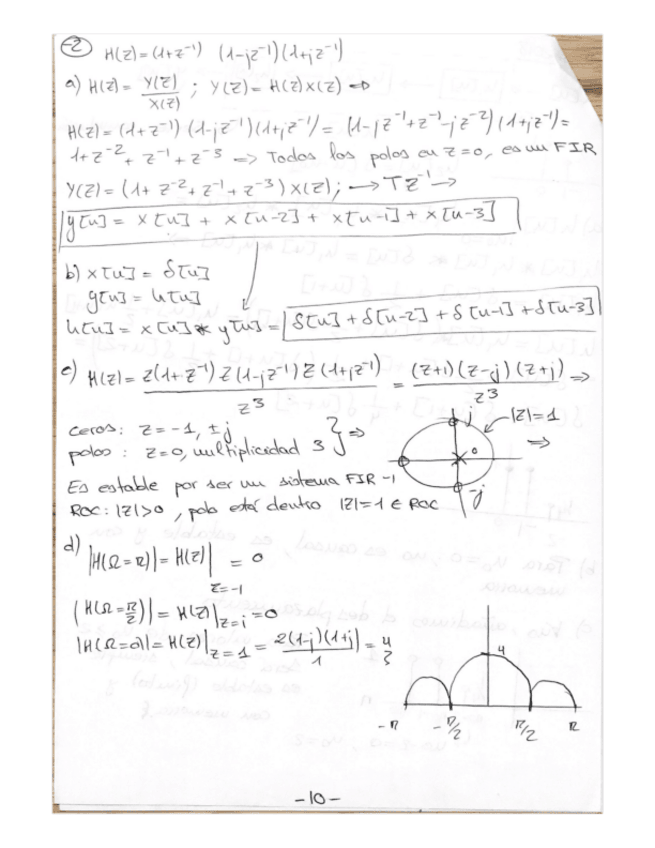 2 H(z)=(1+z⁻¹) (1-jz⁻¹)(1+jz⁻¹)
a) H(z)= Y(z)/X(z) ; Y(z)= H(z)X(z) ⇒
H(z)= (1+z⁻¹)(1-jz⁻¹)(1+jz⁻¹)= (1-jz⁻¹+z⁻¹-jz⁻²)(1+jz⁻¹)=
1+z⁻²+z⁻¹+z⁻³ ⇒ Todos los polos en z=0, es un FIR
Y(z)=(1+z⁻²+z⁻¹+z⁻³)X(z); → TZ⁻¹ →
y[n] = x[n] + x[n-2] + x[n-1] + x[n-3]
b) x[n] = δ[n]
y[n] = h[n]
h[n] = x[n] * y[n] = δ[n]+δ[n-2]+δ[n-1]+δ[n-3]
c) H(z)= z(1+z⁻¹)z(1-jz⁻¹)z(1+jz⁻¹)/z³ = (z+1)(z-j)(z+j)/z³ ⇒
ceros: z=-1, ±j
polos: z=0, multiplicidad 3 } ⇒
j |z|=1 ⇒
0
-j
Es estable por ser un sistema FIR
ROC: |z|>0, polo está dentro |z|=1 ∈ ROC
d)
|H(Ω=π)|=H(z)|z=-1 = 0
|H(Ω=π/2)|= H(z)|z=i =0
|H(Ω=0)|=H(z)|z=1 = 2(1-j)(1+j)/1 = 4
4
-π -π/2 π/2 π
-10-